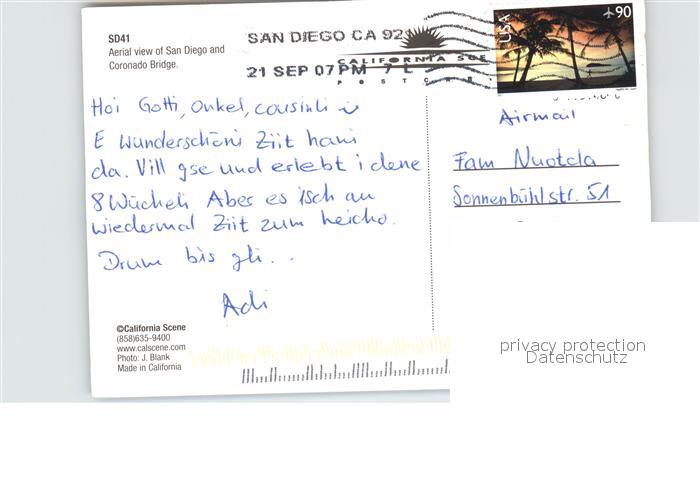 SD41
Aerial view of San Diego and
Coronado Bridge.
SAN DIEGO CA 92
21 SEP 07 PM 7 L
POSTCAR
USA
90
Hoi Gotti, Onkel, cousinli
E Wunderschöni Ziit hani
da. Vill gse und erlebt i dene
8 Wücheli Aber es isch au
wiedermal Ziit zum heicho.
Drum bis gli...
Adi
Airmail
Fam
Sonnenbühlstr. 51
©California Scene
(858)635-9400
www.calscene.com
Photo: J. Blank
Made in California
privacy protection
Datenschutz